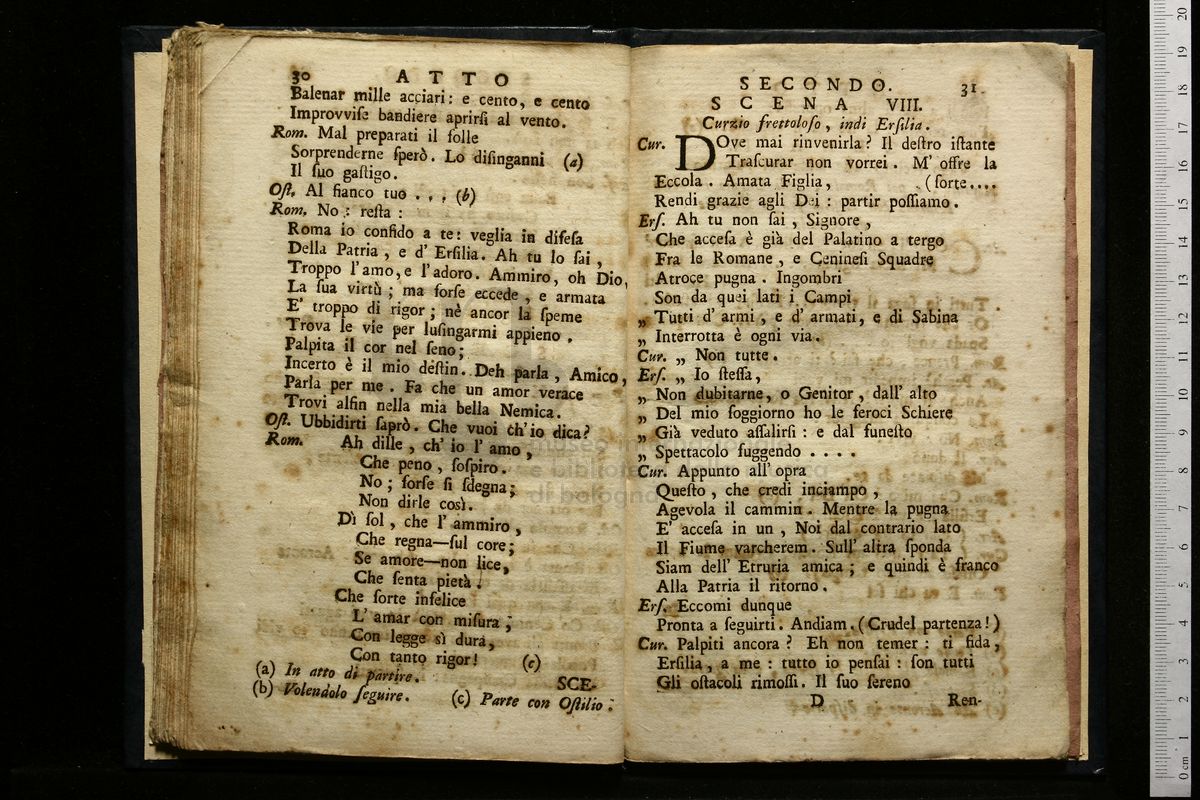 30 ATTO
Balenar mille acciari: e cento, e cento
Improvviſe bandiere aprirſi al vento.
Rom. Mal preparati il folle
Sorprenderne ſperò. Lo diſinganni (a)
Il ſuo gaſtigo.
Oſt. Al fianco tuo . . . (b)
Rom. No: reſta:
Roma io confido a te: veglia in difeſa
Della Patria, e d' Erſilia. Ah tu lo ſai,
Troppo l'amo, e l'adoro. Ammiro, oh Dio,
La ſua virtù; ma forſe eccede, e armata
E' troppo di rigor; nè ancor la ſpeme
Trova le vie per luſingarmi appieno.
Palpita il cor nel ſeno;
Incerto è il mio deſtin. Deh parla, Amico,
Parla per me. Fa che un amor verace
Trovi alfin nella mia bella Nemica.
Oſt. Ubbidirti ſaprò. Che vuoi ch'io dica?
Rom. Ah dille, ch' io l' amo,
Che peno, ſoſpiro.
No; forſe ſi ſdegna;
Non dirle così.
Dì ſol, che l' ammiro,
Che regna—ſul core;
Se amore—non lice,
Che ſenta pietà.
Che ſorte infelice
L' amar con miſura;
Con legge sì dura,
Con tanto rigor! (c)
(a) In atto di partire.
SCE-
(b) Volendolo ſeguire. (c) Parte con Oſtilio.
SECONDO. 31
SCENA VIII.
Curzio frettoloſo, indi Erſilia.
Cur. DOve mai rinvenirla? Il deſtro iſtante
Traſcurar non vorrei. M' offre la
Eccola. Amata Figlia, (ſorte....
Rendi grazie agli Dei: partir poſſiamo.
Erſ. Ah tu non ſai, Signore,
Che acceſa è già del Palatino a tergo
Fra le Romane, e Ceninesi Squadre
Atroce pugna. Ingombri
Son da quei lati i Campi
„ Tutti d' armi, e d' armati, e di Sabina
„ Interrotta è ogni via.
Cur. „ Non tutte.
Erſ. „ Io ſteſſa,
„ Non dubitarne, o Genitor, dall' alto
„ Del mio ſoggiorno ho le feroci Schiere
„ Già veduto aſſalirſi: e dal funeſto
„ Spettacolo fuggendo . . . .
Cur. Appunto all' opra
Queſto, che credi inciampo,
Agevola il cammin. Mentre la pugna
E' acceſa in un, Noi dal contrario lato
Il Fiume varcherem. Sull' altra ſponda
Siam dell' Etruria amica; e quindi è franco
Alla Patria il ritorno.
Erſ. Eccomi dunque
Pronta a ſeguirti. Andiam. (Crudel partenza!)
Cur. Palpiti ancora? Eh non temer: ti fida,
Erſilia, a me: tutto io penſai: ſon tutti
Gli oſtacoli rimoſſi. Il ſuo ſereno
D Ren-